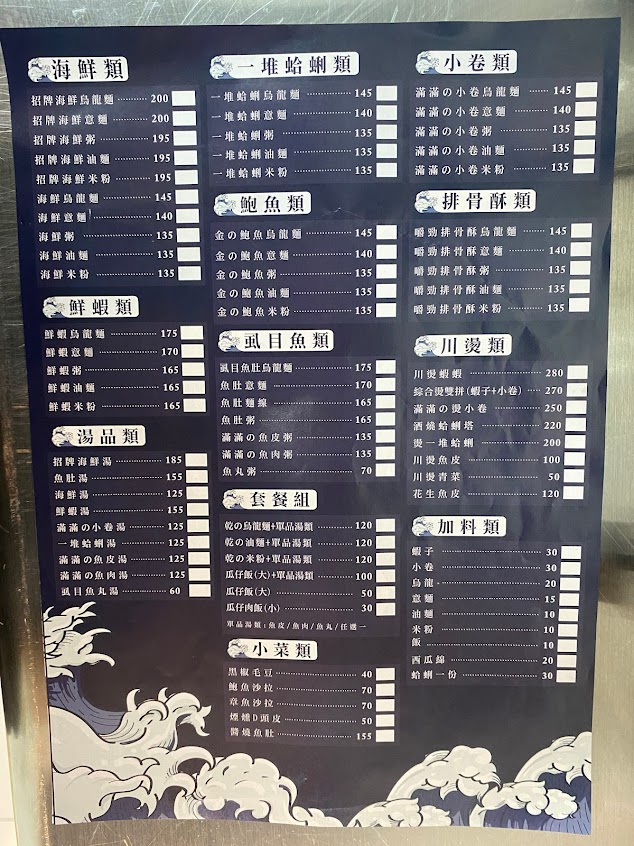 海鮮類
招牌海鮮烏龍麵 200
招牌海鮮意麵 200
招牌海鮮粥 195
招牌海鮮油麵 195
招牌海鮮米粉 195
海鮮烏龍麵 145
海鮮意麵 140
海鮮粥 135
海鮮油麵 135
海鮮米粉 135
鮮蝦類
鮮蝦烏龍麵 175
鮮蝦意麵 170
鮮蝦粥 165
鮮蝦油麵 165
鮮蝦米粉 165
湯品類
招牌海鮮湯 185
魚肚湯 155
海鮮湯 125
鮮蝦湯 155
滿滿の小卷湯 125
一堆蛤蜊湯 125
滿滿の魚皮湯 125
滿滿の魚肉湯 125
虱目魚丸湯 60
一堆蛤蜊類
一堆蛤蜊烏龍麵 145
一堆蛤蜊意麵 140
一堆蛤蜊粥 135
一堆蛤蜊油麵 135
一堆蛤蜊米粉 135
鮑魚類
金の鮑魚烏龍麵 145
金の鮑魚意麵 140
金の鮑魚粥 135
金の鮑魚油麵 135
金の鮑魚米粉 135
虱目魚類
虱目魚肚烏龍麵 175
魚肚意麵 170
魚肚麵線 165
魚肚粥 165
滿滿の魚皮粥 135
滿滿の魚肉粥 135
魚丸粥 70
套餐組
乾の烏龍麵+單品湯類 120
乾の油麵+單品湯類 120
乾の米粉+單品湯類 120
瓜仔飯(大)+單品湯類 100
瓜仔飯(大) 50
瓜仔肉飯(小) 30
單品湯類:魚皮/魚肉/魚丸/任選一
小菜類
黑椒毛豆 40
鮑魚沙拉 70
章魚沙拉 70
煙燻D頭皮 50
醬燒魚肚 155
小卷類
滿滿の小卷烏龍麵 145
滿滿の小卷意麵 140
滿滿の小卷粥 135
滿滿の小卷油麵 135
滿滿の小卷米粉 135
排骨酥類
嚼勁排骨酥烏龍麵 145
嚼勁排骨酥意麵 140
嚼勁排骨酥粥 135
嚼勁排骨酥油麵 135
嚼勁排骨酥米粉 135
川燙類
川燙蝦蝦 280
綜合燙雙拼(蝦子+小卷) 270
滿滿の燙小卷 250
酒燒蛤蜊塔 220
燙一堆蛤蜊 200
川燙魚皮 100
川燙青菜 50
花生魚皮 120
加料類
蝦子 30
小卷 30
烏龍 20
意麵 15
油麵 10
米粉 10
飯 10
西瓜綿 20
蛤蜊一份 30